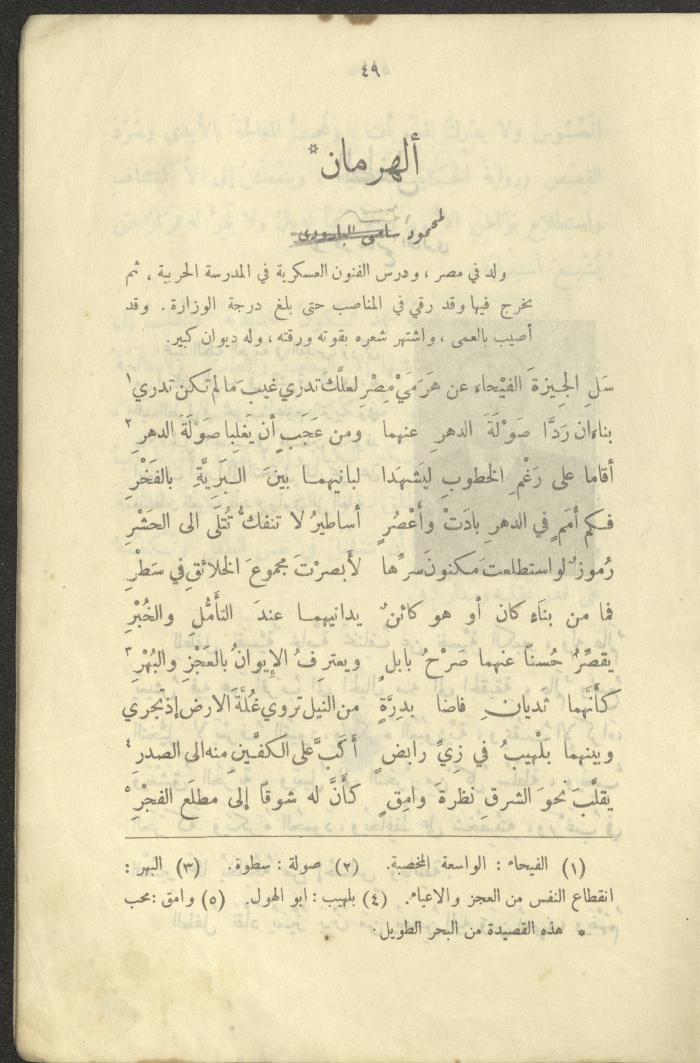 ٤٩
ألهرمان*
لمحمود سامي البارودي
ولد في مصر ، ودرس الفنون العسكرية في المدرسة الحربية ، ثم
تخرج فيها وقد رقي في المناصب حتى بلغ درجة الوزارة . وقد
أصيب بالعمى ، واشتهر شعره بقوته ورقته ، وله ديوان كبير.
سَلِ الجِيزةَ الفيْحاءَ عن هَرَمَيْ مِصْرِ لعلَّكَ تدري غيبَ ما لم تكن تدري ١
بناءان ردَّا صَوْلَةَ الدهرِ عنهما ومن عَجَبٍ أن يَغلِبا صَوْلَةَ الدهرِ ٢
أقاما على رَغْمِ الخطوبِ ليَشهَدا لبانيهما بينَ البَرِيَّةِ بالفَخْرِ
فكم أُمَمٍ في الدهرِ بادَتْ وأَعْصُرٍ أساطيرُ لا تنفكُّ تُتلَى الى الحَشْرِ
رُموزٌ لو استطلعتَ مكنونَ سرِّها لأَبصرْتَ مجموعَ الخلائقِ في سَطْرِ
فما من بنَاءٍ كان أو هو كائنٌ يدانيهما عندَ التأمُّلِ والخُبْرِ
يقصِّرُ حُسناً عنهما صَرْحُ بابلٍ ويعترِفُ الإيوانُ بالعَجْزِ والبُهْرِ ٣
كأنَّهما ثديانِ فاضا بدِرَّةٍ من النيلِ تروي غُلَّةَ الارضِ إذ تجري
وبينهما بَلْهيبُ في زِيِّ رابضٍ أَكبَّ على الكفَّينِ منه الى الصدرِ ٤
يقلِّبُ نحوَ الشرقِ نظرةَ وامِقٍ كأنَّ له شوقاً إلى مطلَعِ الفجْرِ ٥
(١) الفيحاء : الواسعة المخصبة. (٢) صولة : سطوة. (٣) البهر :
انقطاع النفس من العجز والاعياء. (٤) بلهيب : ابو الهول. (٥) وامق : محب
* هذه القصيدة من البحر الطويل.